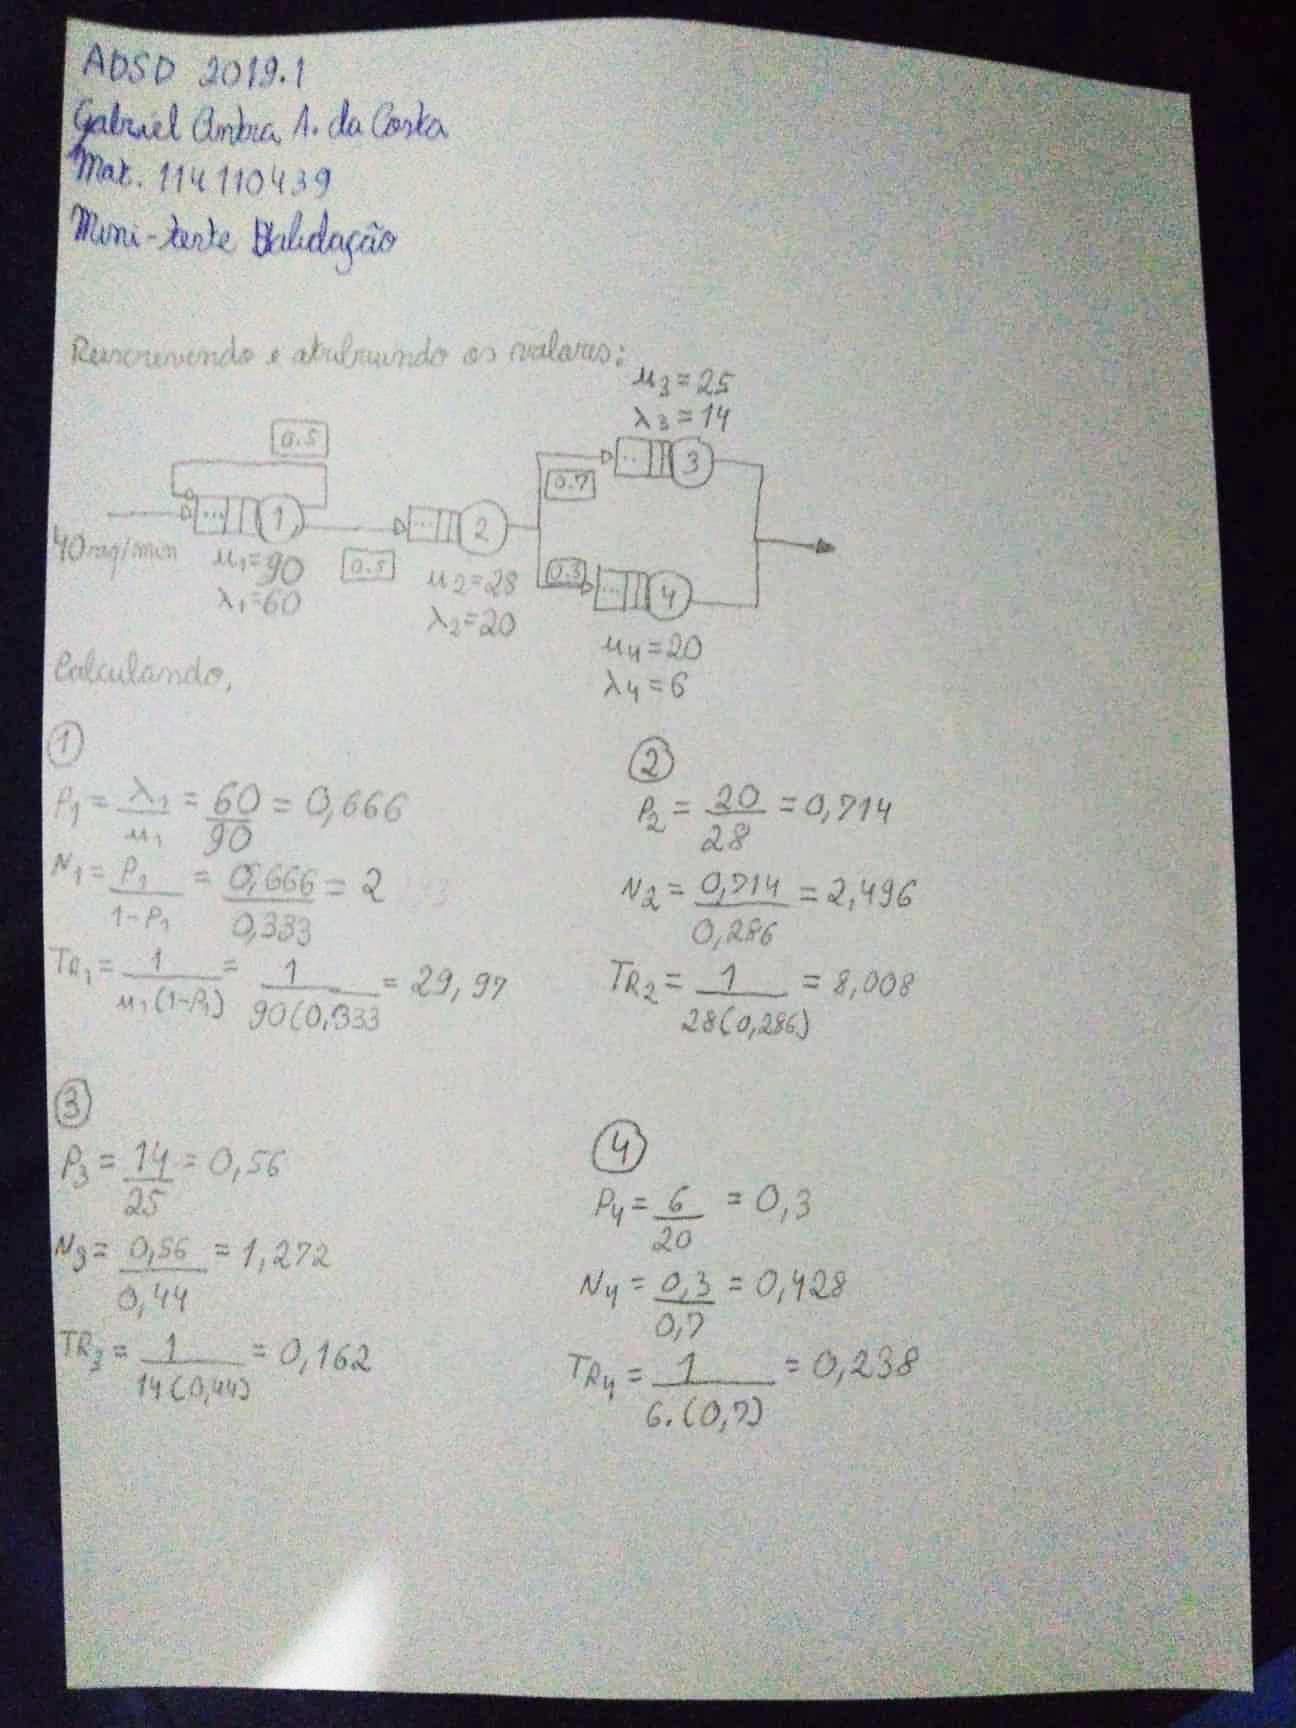 ADSD 2019.1
Gabriel Cintra A. da Costa
Mat. 114110439
Mini-teste Validação
Reescrevendo e atribuindo os valores:
μ3 = 25
λ3 = 14
0.5
... 1
... 2
0.7
... 3
0.3
... 4
40 req/min
μ1=90
λ1=60
0.5
μ2=28
λ2=20
μ4=20
λ4=6
Calculando,
1
ρ1 = λ1/μ1 = 60/90 = 0,666
N1 = ρ1/1-ρ1 = 0,666/0,333 = 2
TR1 = 1/μ1(1-ρ1) = 1/90(0,333 = 29,97
2
ρ2 = 20/28 = 0,714
N2 = 0,714/0,286 = 2,496
TR2 = 1/28(0,286) = 8,008
3
ρ3 = 14/25 = 0,56
N3 = 0,56/0,44 = 1,272
TR3 = 1/14(0,44) = 0,162
4
ρ4 = 6/20 = 0,3
N4 = 0,3/0,7 = 0,428
TR4 = 1/6.(0,7) = 0,238